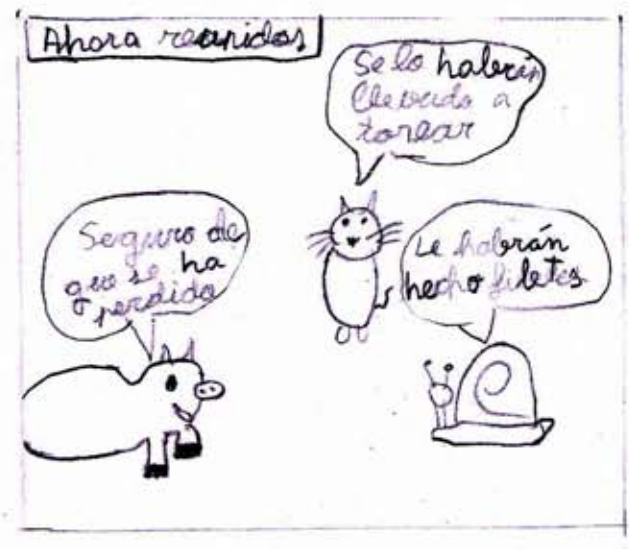 Ahora reunidos
Se lo habrán
llevado a
torear
Seguro de
que se ha
perdido
Le habrán
hecho filetes